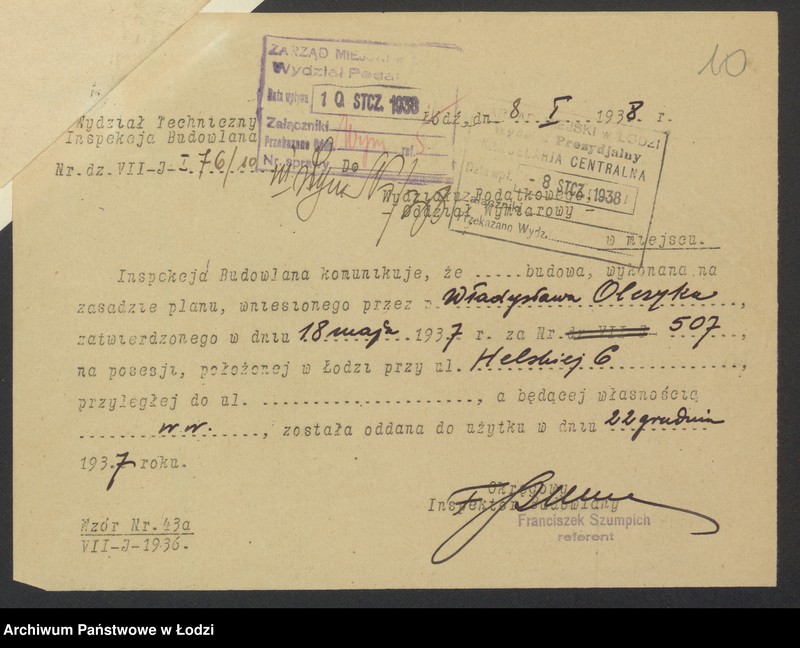 10
ZARZĄD MIEJSKI
Wydział Podat
Data wpływu 10 STCZ. 1938
Załączniki
Przekazano Wym. ref. 5
Nr. sprawy
Wydział Techniczny
Inspekcja Budowlana
Nr. dz. VII-J-I 76/10
Łódź, dn. 8. I 1938 r.
MIEJSKI w ŁODZI
Prezydjalny
KANCELARIA CENTRALNA
- 8 STCZ. 1938
Załączniki
Przekazano Wydz.
Do
Wydziału Podatkowego,
- Oddział Wymiarowy -
w miejscu.
Inspekcja Budowlana komunikuje, że .....budowa, wykonana na
zasadzie planu, wniesionego przez p. Władysława Olczyka,
zatwierdzonego w dniu 18 maja 1937 r. za Nr. 507,
na posesji, położonej w Łodzi przy ul. Helskiej 6,
przyległej do ul. ...................., a będącej własnością
w w., została oddana do użytku w dniu 22 grudnia
1937 roku.
Okręgowy
Inspektor Budowlany
Franciszek Szumpich
referent
Wzór Nr. 43a
VII-J-1936.
Archiwum Państwowe w Łodzi